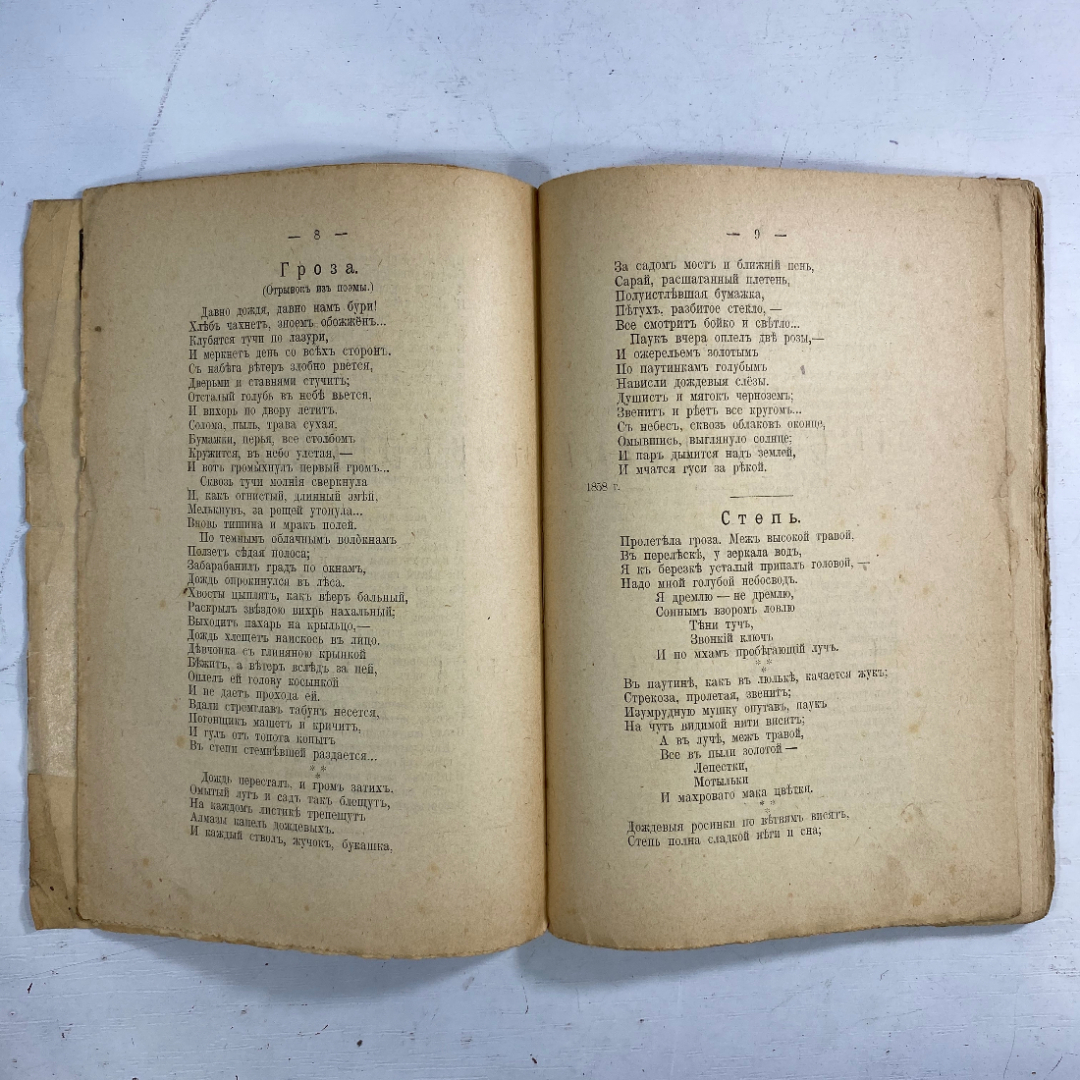 — 8 —
Гроза.
(Отрывокъ изъ поэмы.)
Давно дождя, давно намъ бури!
Хлѣбъ чахнетъ, зноемъ обожжёнъ...
Клубятся тучи по лазури,
И меркнетъ день со всѣхъ сторонъ.
Съ набѣга вѣтеръ злобно рвется,
Дверьми и ставнями стучитъ;
Отсталый голубь въ небѣ вьется,
И вихорь по двору летитъ.
Солома, пыль, трава сухая,
Бумажки, перья, все столбомъ
Кружится, въ небо улетая, —
И вотъ громыхнулъ первый громъ...
Сквозь тучи молнія сверкнула
И, какъ огнистый, длинный змѣй,
Мелькнувъ, за рощей утонула...
Вновь тишина и мракъ полей.
По темнымъ облачнымъ волокнамъ
Ползетъ сѣдая полоса;
Забарабанилъ градъ по окнамъ,
Дождь опрокинулся въ лѣса.
Хвосты цыплятъ, какъ вѣеръ бальный,
Раскрылъ звѣздою вихрь нахальный;
Выходитъ пахарь на крыльцо,—
Дождь хлещетъ наискось въ лицо.
Дѣвчонка съ глиняною крынкой
Бѣжитъ, а вѣтеръ вслѣдъ за ней,
Оплелъ ей голову косынкой
И не даетъ прохода ей.
Вдали стремглавъ табунъ несется,
Погонщикъ машетъ и кричитъ,
И гулъ отъ топота копытъ
Въ степи стемнѣвшей раздается...
* * *
Дождь пересталъ, и громъ затихъ.
Омытый лугъ и садъ такъ блещутъ,
На каждомъ листикѣ трепещутъ
Алмазы капель дождевыхъ.
И каждый стволъ, жучокъ, букашка,
— 9 —
За садомъ мостъ и ближній пень,
Сарай, расшатанный плетень,
Полуистлѣвшая бумажка,
Пѣтухъ, разбитое стекло, —
Все смотритъ бойко и свѣтло...
Паукъ вчера оплелъ двѣ розы,—
И ожерельемъ золотымъ
По паутинкамъ голубымъ
Нависли дождевыя слёзы.
Душистъ и мягокъ черноземъ;
Звенитъ и рѣетъ все кругомъ...
Съ небесъ, сквозь облаковъ оконце,
Омывшись, выглянуло солнце;
И паръ дымится надъ землей,
И мчатся гуси за рѣкой.
1858 г.
Степь.
Пролетѣла гроза. Межъ высокой травой,
Въ перелѣскѣ, у зеркала водъ,
Я къ березкѣ усталый припалъ головой, —
Надо мной голубой небосводъ.
Я дремлю — не дремлю,
Соннымъ взоромъ ловлю
Тѣни тучъ,
Звонкій ключъ
И по мхамъ пробѣгающій лучъ.
* * *
Въ паутинѣ, какъ въ люлькѣ, качается жукъ;
Стрекоза, пролетая, звенитъ;
Изумрудную мушку опутавъ, паукъ
На чуть видимой нити виситъ;
А въ лучѣ, межъ травой,
Все въ пыли золотой —
Лепестки,
Мотыльки
И махроваго мака цвѣтки.
* * *
Дождевыя росинки по вѣтвямъ висятъ,
Степь полна сладкой нѣги и сна;